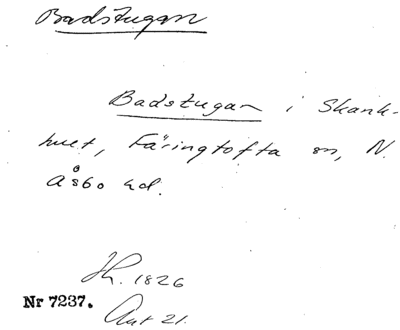 Badstugan
Badstugan i Skank-
huet, Färingtofta sn, N.
Åsbo hd.
Jh. 1826
Nr 7237.
Akt 21.